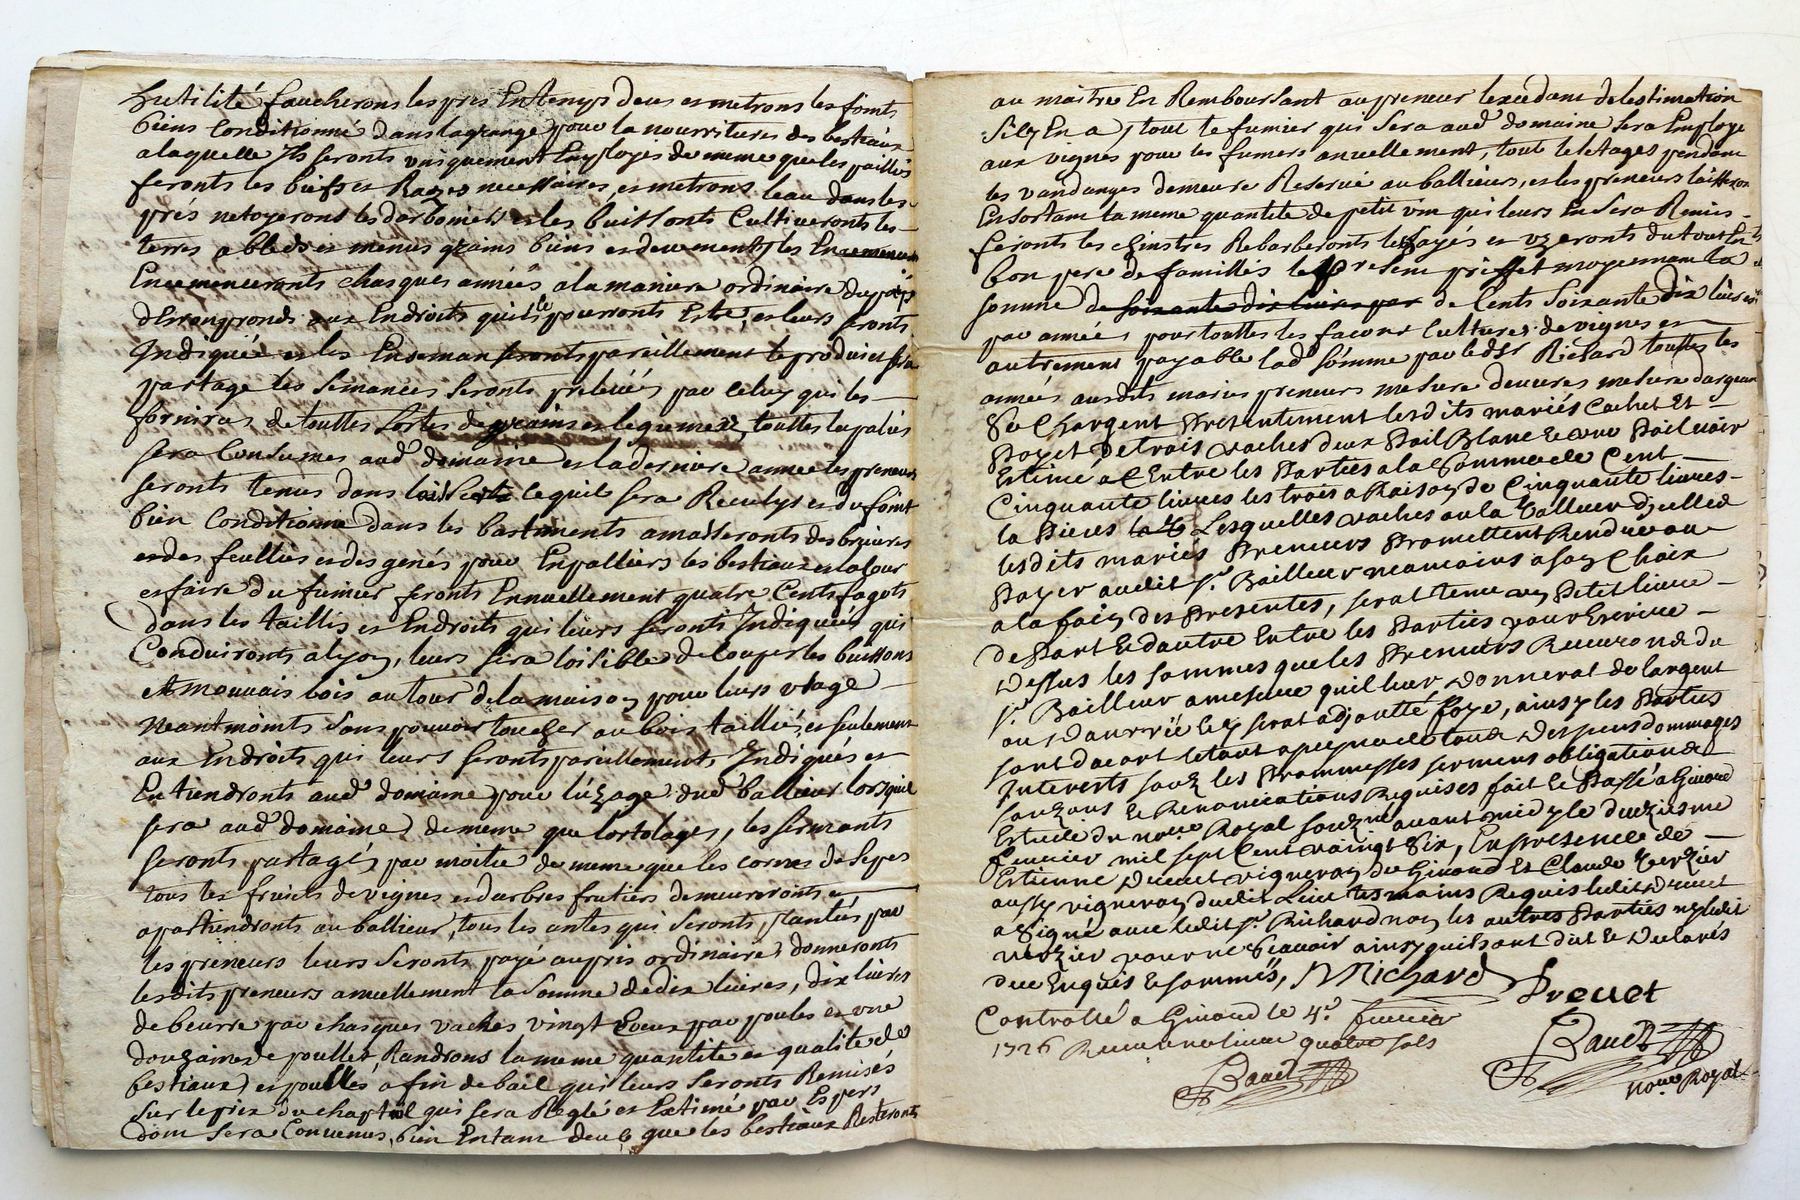 hutilité faucherons les pres En temps deus et metrons les foints
biens Conditionné dans la grange pour la nourritures des bestiaux
a laquelle Ils seronts unicquement Employés de meme que les paillies
feronts les biefs et Razes necessaires, et metrons leau dans les
prés netoyerons les darbonieres et les buissonts Cultiveronts les
terres a bleds et menus grains biens et deuement, les
Encemenceronts chasques années a la maniere ordinaire du pays
desrompronds aux Endroits quils le pourronts Estre, et leurs seronts
Indiquée et les seronts pareillement le produit sera
partage les Semances seronts prelevées par Celuy qui les
fornira de touttes Sortes de grains et legumes, touttes la pallies
sera Consumes aud. domaine et la derniere annee les preneurs
seronts tenus dans laisser ce quil sera Recului et du foint
bien Conditionne dans les bastiments amasseronts des bruieres
et des feullies et des genés pour Enpalliers les bestiaux et la Cour
et faire du fumier feronts Ennuellement quatre Cents fagots
dans les taillis et Endroits qui leurs seronts Indiquées qui
Conduironts a lyon, leurs sera loisible de Couper les buissons
et mauvais bois autour de la maison pour leurs usage
Neantmoints Sans pouvoir toucher au bois taillié, et seulement
aux Endroits qui leurs seronts pareillements Indiqués et
Entiendronts aud. domaine pour luzage dud. ballieur lorsquil
sera aud. domaine de meme que lortolages, les sermants
seronts partagés par moitie de meme que les cornes de Sepes
tous les fruicts de vignes et darbres frutiers demeureronts et
apartiendronts au ballieur, tous les antes qui Seronts plantées par
les preneurs leurs Seronts payé au pris ordinaire, donneronts
lesdits preneurs annuellement la Somme de dix livres, dix livres
de beurre par chasques vaches vingt oeufs par poules et une
douzaines de poullets Randrons la meme quantite et qualité de
bestiaux et poulles a fin de bail qui leurs Seronts Remisés
Sur le prix du chaptail qui sera Reglé et Extimé par Expers
dont Sera Convenus, bien Entant deu que les bestiaux Resteronts
au maistres En Remboursant au preneur lexcedant de lestimation
Silz En a, tout le fumier qui Sera aud. domaine Sera Employe
aux vignes pour les fumers anuellement, tout le letages pendant
les vandanges demeure Reservé au ballieurs, et les preneurs laisseron
En Sortant la meme quantite de petit vin qui leurs En Sera Remis
feronts les chinstres Rebarberonts les hayés et uzeronts du tout En
bon pere de famillies le present priffet moyennant la
somme de soixante dix livres par de Cents Soixante dix livres
par année, pour touttes les facons Cultures de vignes et
autrement payable lad. somme par ledit Sr. Richard touttes les
années ausdits mariés preneurs mesure deuvres mesure dargeant
Se Chargent Presentement lesdits mariés Cachet Et
Poyet De trois vaches deux Poil Blanc Et une Poil noir
Estimé a Entre les Parties a la Somme de Cent
Cinquante livres les trois a Raison de Cinquante livres
la Pieces Lesquelles vaches ou la Valleur dicelles
lesdits mariés Preneurs Promettent Rendre ou
Payer audit Sr. Bailleur neamoins a son Choix
a la fain des Presentes, serat tenu un Petit livre
de Part Et dautre Entre les Parties pour Escrire
Dessus les sommes que les Preneurs Recevronds du
Sr. Bailleur amesure quil leur Donnerat de largent
ou Danrrée lequel serat adjoutté foye, ainsy les Parties
sont dacort letant a peynne de tous Despens dommages
Interests souz les Prommesses sermens obligations
souzions Et Renonciations Requises fait Et Passé a Givord
Estude du noire Royal souzné avant midy le deuzieme
feuvrier mil sept Cent vaingt Six, En presence de
Estienne Drevet vigneron de Givord Et Claude Verzier
aussy vigneron dudit Lieu tesmoins Requis ledit Drevet
a Signé avec ledit Sr. Richard non les autres Parties ny ledit
verzier pour ne Scavoir ainsy quils ont dit Et Declarés
de ce Enquis Et sommés, M Richard
Drevet
Controllé a Givord le 4e. feuvrier
1726 Receu une livre quatre sols
Baud
Baud
Noire. Royal